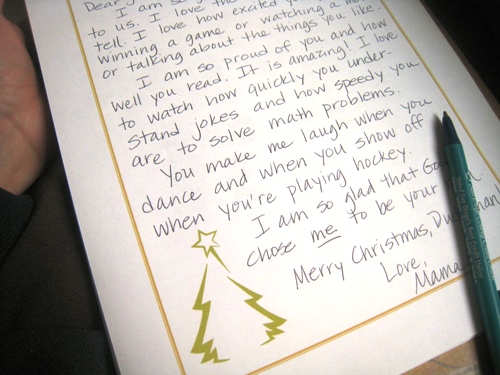 Dear
I am so
to us. I love
tell. I love how excited
winning a game or watching a
or talking about the things you like.
I am so proud of you and how
well you read. It is amazing! I love
to watch how quickly you under-
stand jokes and how speedy you
are to solve math problems.
You make me laugh when you
dance and when you show off
when you're playing hockey.
I am so glad that
chose me to be your
Merry Christmas,
Love,
Mama